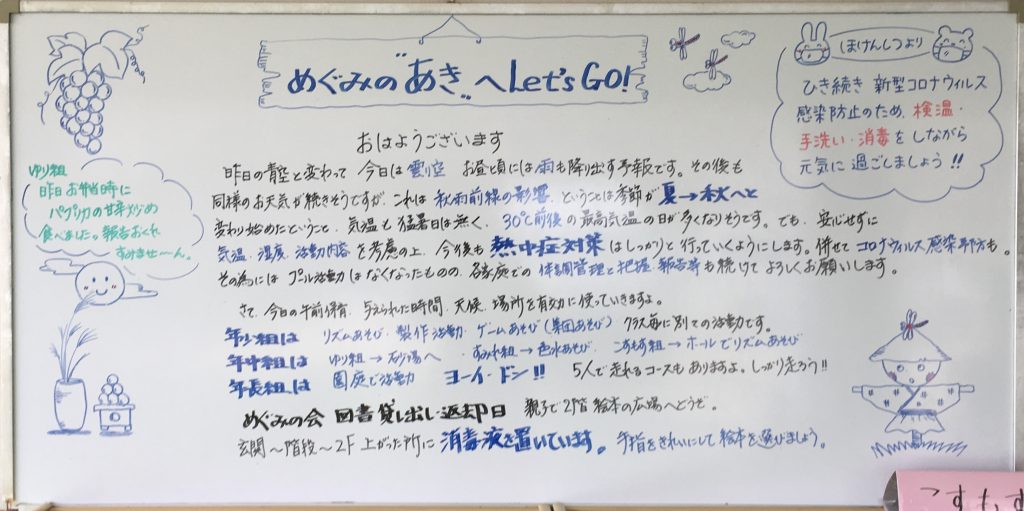 めぐみの"あき"へLet's GO!
ほけんしつより
ひき続き 新型コロナウィルス
感染防止のため、検温・
手洗い・消毒をしながら
元気に過ごしましょう!!
ゆり組
昨日お弁当時に
パプリカの甘辛炒め
食べました。報告おくれ
すみませ〜ん。
おはようございます
昨日の青空と変わって 今日は曇り空 お昼頃には雨も降り出す予報です。その後も
同様のお天気が続きそうですが、これは秋雨前線の影響、ということは季節が夏→秋へと
変わり始めたということ、気温も猛暑日は無く、30℃前後の最高気温の日が多くなりそうです。でも、安心せずに
気温、湿度、活動内容を考慮の上、今後も熱中症対策はしっかりと行っていくようにします。併せてコロナウィルス感染予防も。
その為には プール活動はなくなったものの、各家庭での体調管理と把握、報告等も続けてよろしくお願いします。
さて、今日の午前保育、与えられた時間、天候、場所を有効に使っていきますよ。
年少組は リズムあそび・製作活動・ゲームあそび(集団あそび) クラス毎に別での活動です。
年中組は ゆり組→砂場へ すみれ組→色水あそび、こすもす組→ホールでリズムあそび
年長組は 園庭で活動 ヨーイ・ドン!! 5人で走れるコースもありますよ。しっかり走ろう!!
めぐみの会 図書貸し出し返却日 親子で2階絵本の広場へどうぞ。
玄関〜階段〜2F上がった所に消毒液を置いています。手指をきれいにして絵本を選びましょう。
こすもす